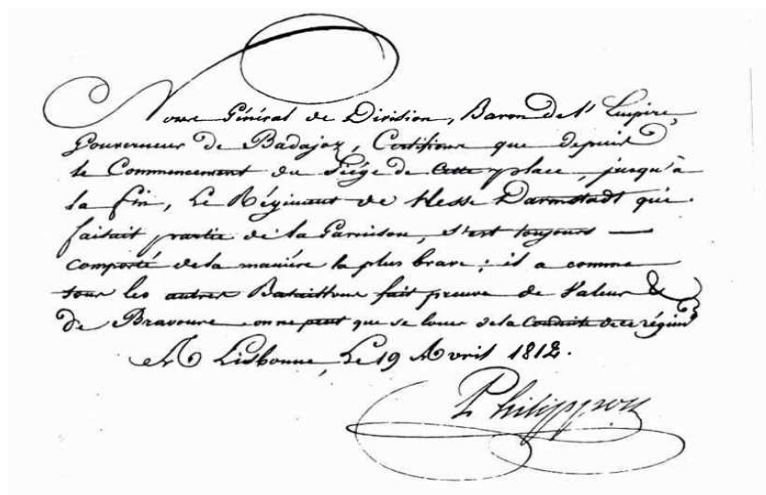 Nous Général de Division, Baron de l'Empire,
Gouverneur de Badajoz, Certifions que depuis
le Commencement du Siége de cette place, jusqu'à
la fin, Le Régiment de Hesse Darmstadt qui
faisait partie de la Garnison, s'est toujours —
comporté de la maniére la plus brave; il a comme
tous les autres Bataillons fait preuve de Valeur &
de Bravoure on ne peut que se louer de la Conduite de ce régimt
A Lisbonne, Le 19 Avril 1812.
Philippon